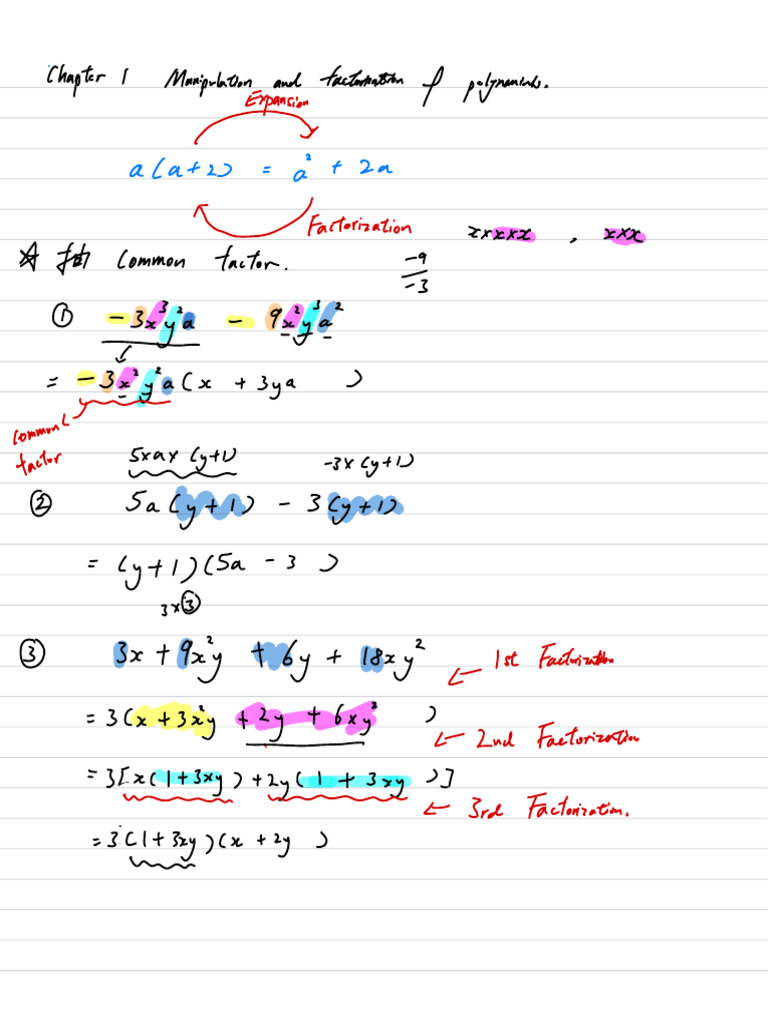 Chapter 1 Manipulation and factorization of polynomials.
Expansion
a(a+2) = a² + 2a
Factorization
x×x×x×x , x×x
☆ 抽 Common factor.
-9
-3
① -3x³y²a - 9x²y³a²
= -3x²y²a(x + 3ya )
common
factor
5×a×(y+1) -3×(y+1)
② 5a(y+1) - 3(y+1)
= (y+1)(5a - 3 )
3×③
③ 3x + 9x²y + 6y + 18xy²
← 1st Factorization
= 3(x + 3x²y + 2y + 6xy² )
← 2nd Factorization
= 3[x(1+3xy) + 2y(1 + 3xy )]
← 3rd Factorization.
= 3(1+3xy)(x + 2y )